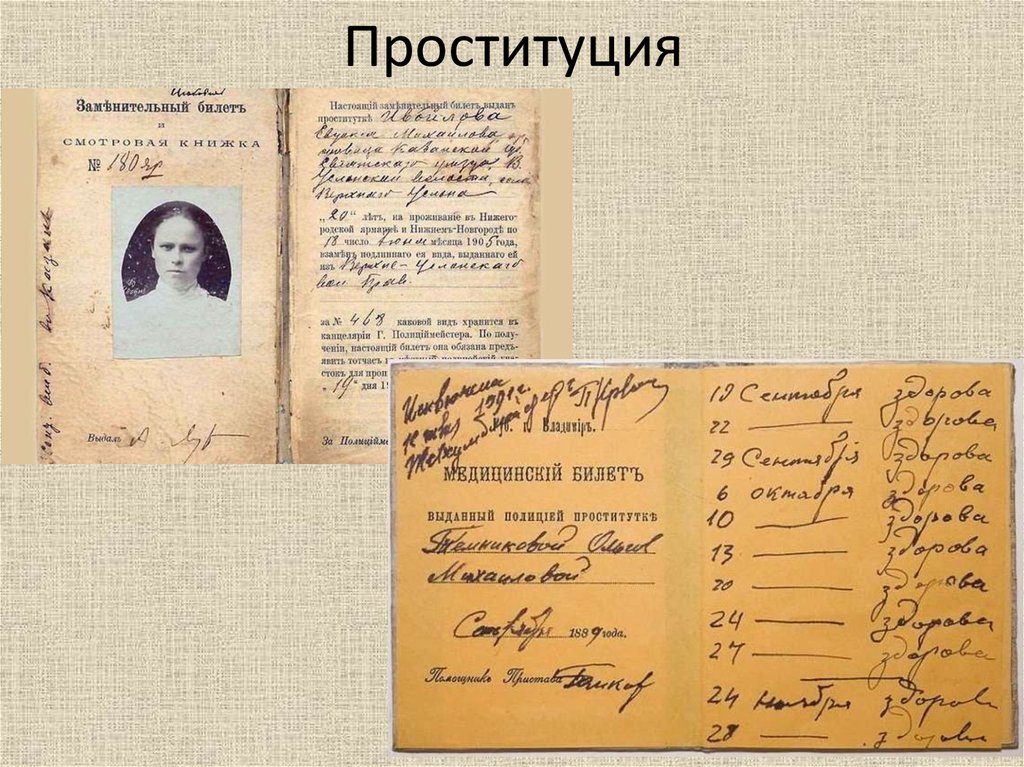 Проституция
Замѣнительный билетъ
и
СМОТРОВАЯ КНИЖКА
№ 180
Выдалъ
Настоящій замѣнительный билетъ выданъ
проституткѣ Ивойлова
Михайлова
Казанской
уѣзда
волости, села
Верхняго Услона
„20“ лѣтъ, на проживаніе въ Нижего-
родской ярмаркѣ и Нижнемъ-Новгородѣ по
18 число іюня мѣсяца 1905 года,
взамѣнъ подлиннаго ея вида, выданнаго ей
изъ Верхне-Услонскаго
вол. Прав.
за № 463 каковой видъ хранится въ
канцеляріи Г. Полиціймейстера. По полу-
ченіи, настоящій билетъ она обязана предъ-
явить тотчасъ
стокъ для
„19“ дня
За
г. Владиміръ.
МЕДИЦИНСКІЙ БИЛЕТЪ
ВЫДАННЫЙ ПОЛИЦІЕЙ ПРОСТИТУТКѢ
Темниковой Ольгѣ
Михайловой
Сентября 1889 года.
Помощникъ Пристава
19 Сентября здорова
22 — здорова
29 Сентября здорова
6 октября здорова
10 — здорова
13 — здорова
20 — здорова
24 — здорова
27 — здорова
24 ноября здорова
28 — здорова